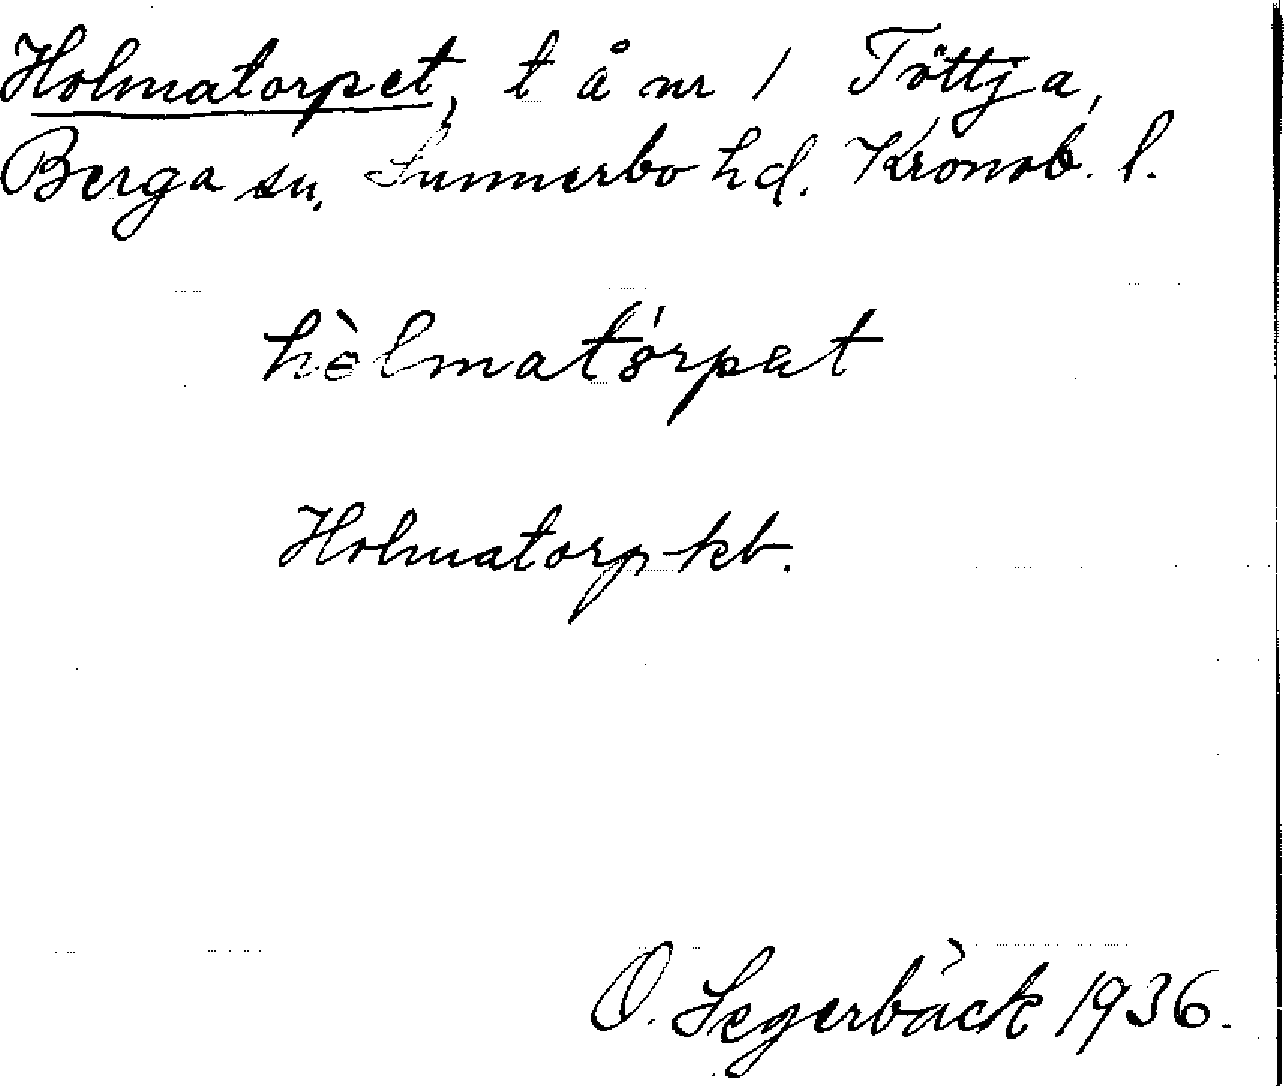 Holmatorpet, t å nr 1 Töttja,
Berga sn, Sunnerbo hd. Kronob. l.
hòlmatórpet
Holmatorp kb.
O. Segerbäck 1936.